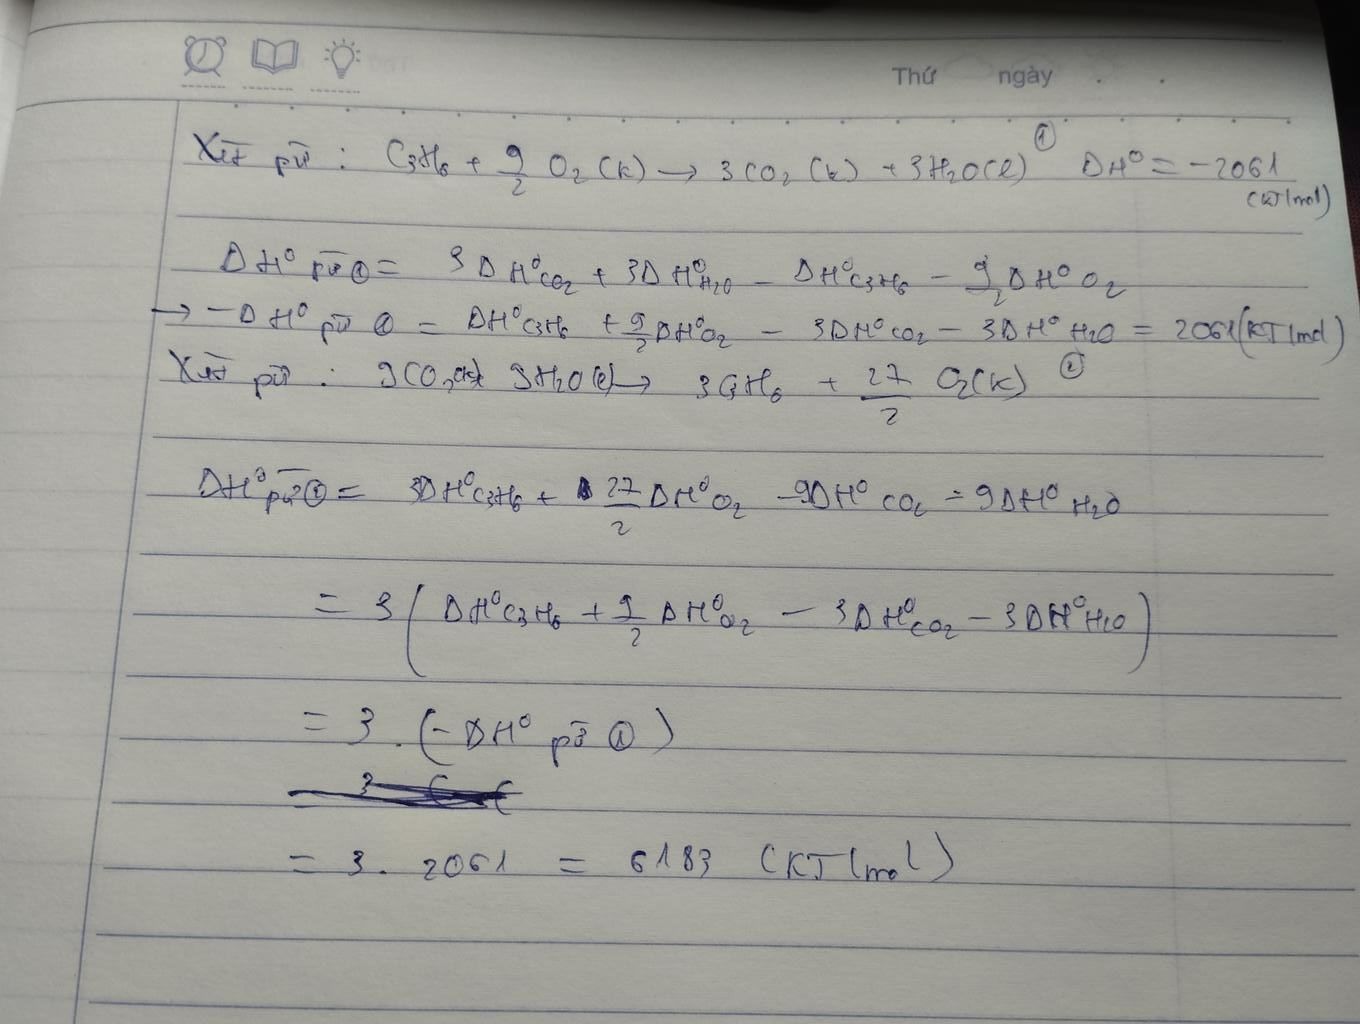 Thứ ngày
Xét pứ : C3H6 + 9/2 O2 (k) → 3CO2 (k) + 3H2O(l) ① ΔH⁰ = -2061
(KJ/mol)
ΔH⁰ pứ① = 3ΔH⁰CO2 + 3ΔH⁰H2O - ΔH⁰C3H6 - 9/2 ΔH⁰ O2
→ -ΔH⁰ pứ ① = ΔH⁰C3H6 + 9/2 ΔH⁰O2 - 3ΔH⁰CO2 - 3ΔH⁰ H2O = 2061(KJ/mol)
Xét pứ : 9CO2(k) 9H2O(l) → 3C3H6 + 27/2 O2(k) ②
ΔH⁰ pứ② = 3ΔH⁰C3H6 + 27/2 ΔH⁰O2 - 9ΔH⁰ CO2 - 9ΔH⁰ H2O
= 3 ( ΔH⁰C3H6 + 9/2 ΔH⁰O2 - 3ΔH⁰CO2 - 3ΔH⁰H2O )
= 3 . (- ΔH⁰ pứ ① )
= 3 . 2061 = 6183 (KJ/mol)